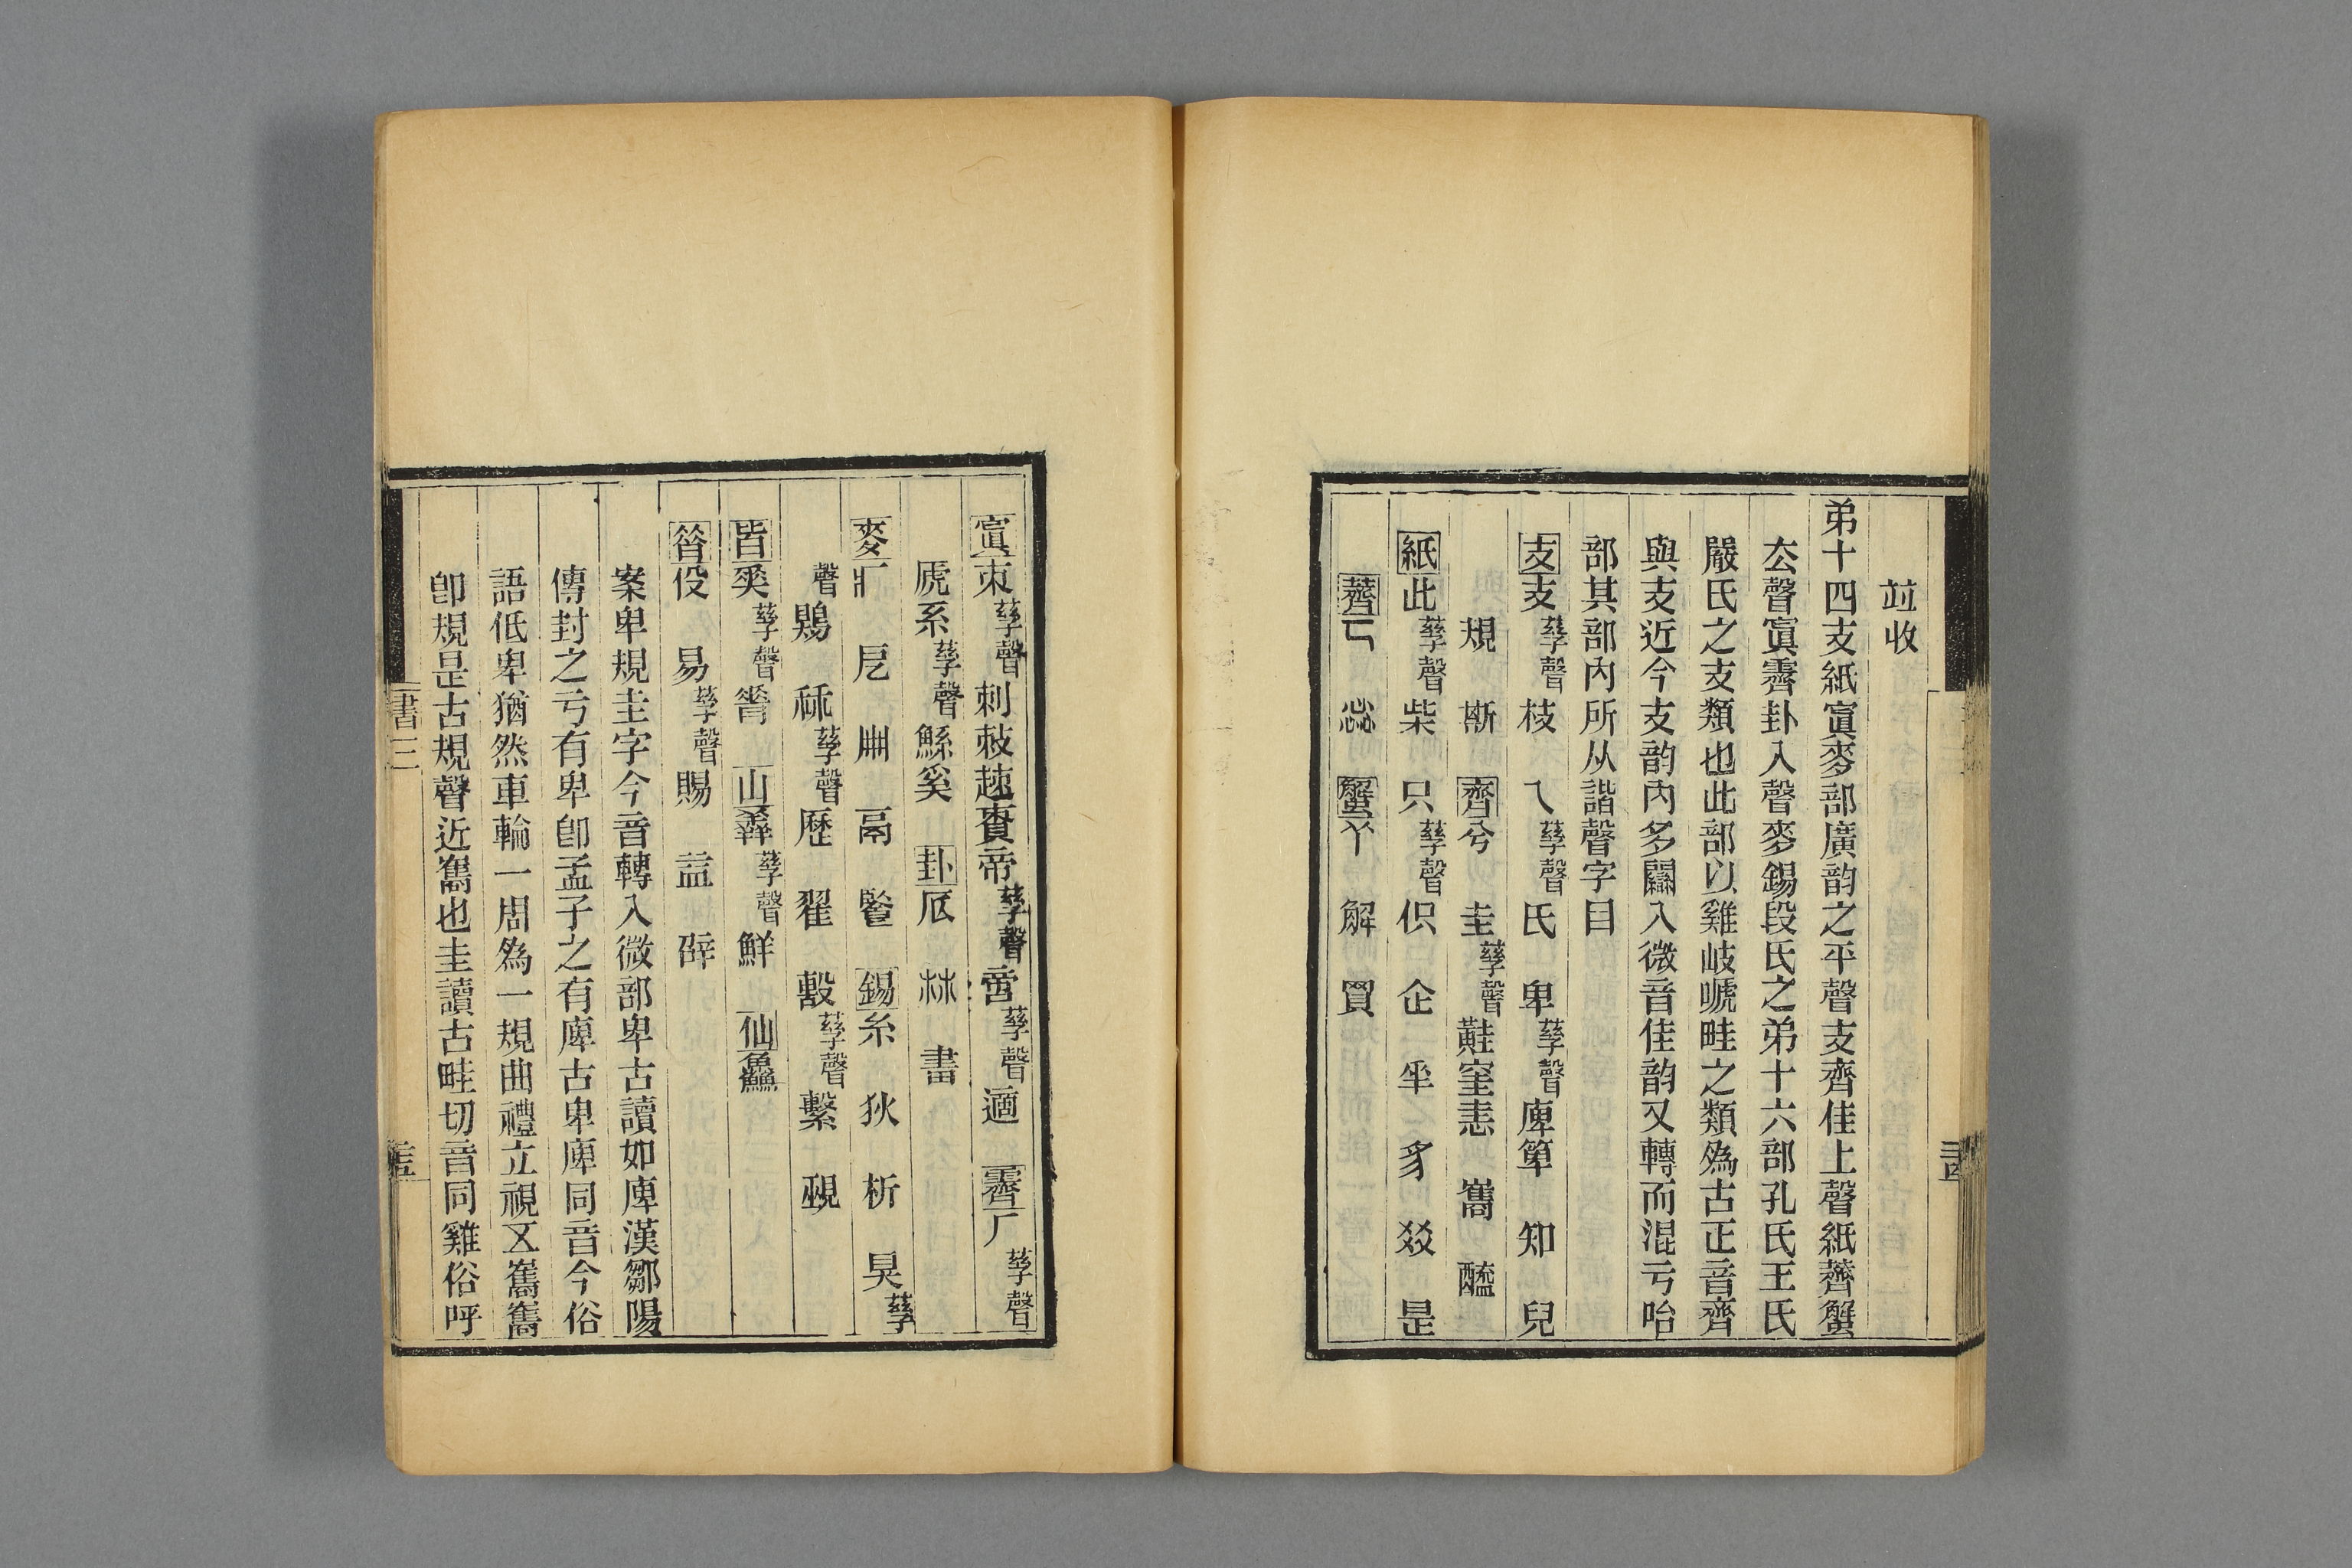 竝收
弟十四支紙寘麥部廣韵之平聲支齊佳上聲紙薺蟹
厺聲寘霽卦入聲麥錫段氏之弟十六部孔氏王氏
嚴氏之支類也此部以雞岐嗁畦之類爲古正音齊
與支近今支韵内多闌入微音佳韵又轉而混亏咍
部其部内所从諧聲字目
支支孳聲枝乁孳聲氏卑孳聲庳箄知兒
規斯齊兮圭孳聲黊窐恚巂醯
紙此孳聲柴只孳聲伿企𠂹豸㸚是
薺匸惢蟹𠁥解買
寘朿孳聲刺敕䞣賫帝孳聲啻孳聲適霽𠂆孳聲
虒系孳聲鯀奚卦𠂢𣏟畫
麥疒戹冊鬲毉錫糸狄析狊孳
聲鶪秝孳聲歷翟毄孳聲繫覡
皆𠍮孳聲𦟝山羴孳聲鮮仙鱻
昝役易孳聲賜益辟
案卑規圭字今音轉入微部卑古讀如庳漢鄒陽
傳封之亏有卑卽孟子之有庳古卑庳同音今俗
語低卑猶然車輪一周爲一規曲禮立視㐅巂巂
卽規是古規聲近巂也圭讀古畦切音同雞俗呼
書三